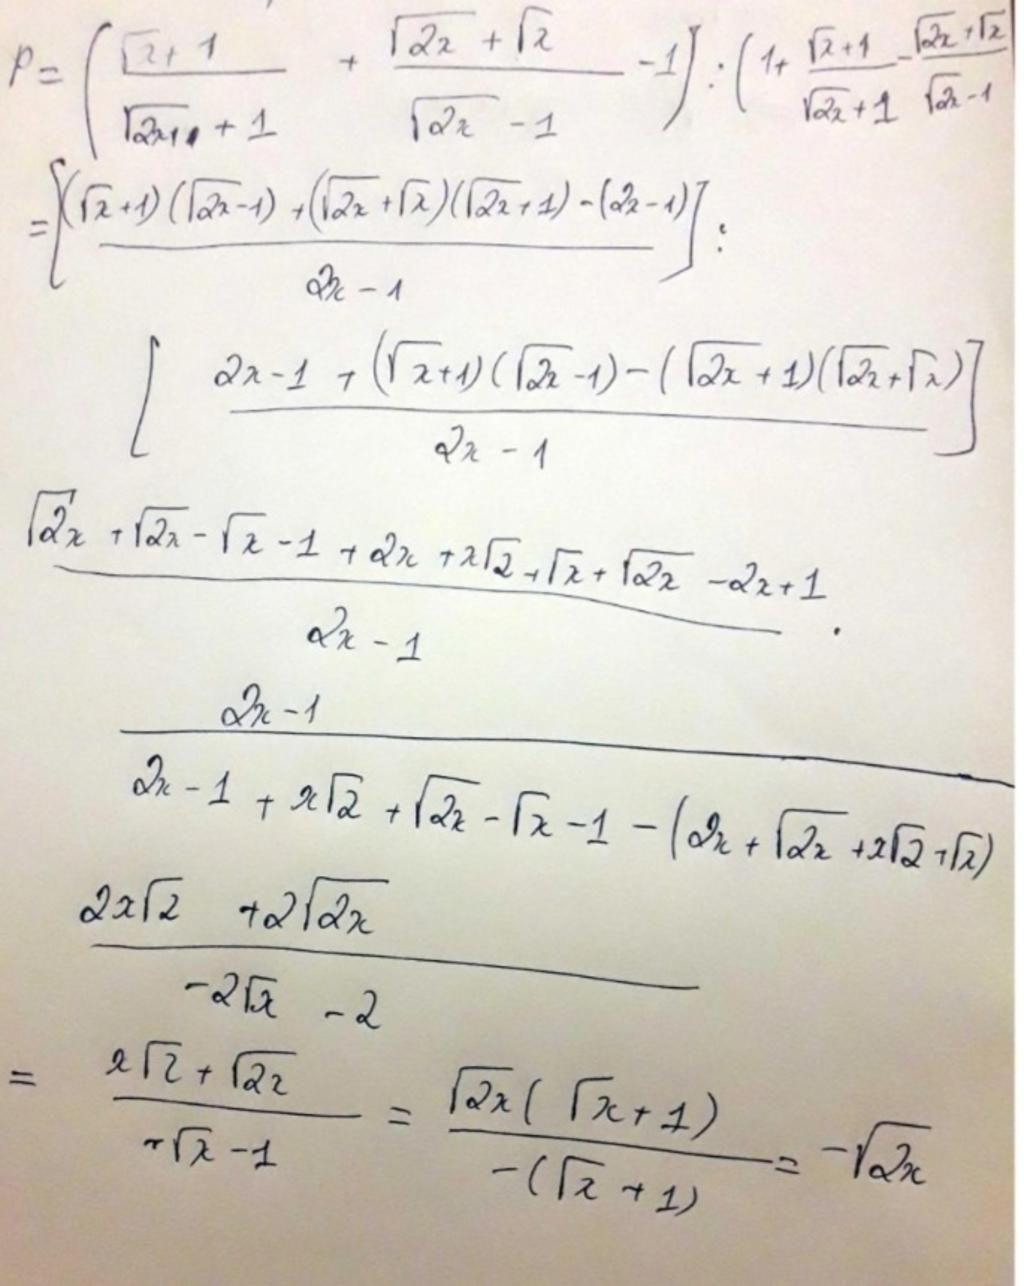 P = ( (√x + 1)/(√2x + 1) + (√2x + √x)/(√2x - 1) - 1) : (1 + (√x + 1)/(√2x + 1) - (√2x + √x)/(√2x - 1)
= [ ((√x + 1)(√2x - 1) + (√2x + √x)(√2x + 1) - (2x - 1))/(2x - 1) ] :
[ (2x - 1 + (√x + 1)(√2x - 1) - (√2x + 1)(√2x + √x))/(2x - 1) ]
(√2x + √2x - √x - 1 + 2x + x√2 + √x + √2x - 2x + 1)/(2x - 1) .
(2x - 1)/(2x - 1 + x√2 + √2x - √x - 1 - (2x + √2x + x√2 + √x))
(2x√2 + 2√2x)/(-2√x - 2)
= (x√2 + √2x)/(-√x - 1) = (√2x(√x + 1))/(-(√x + 1)) = -√2x